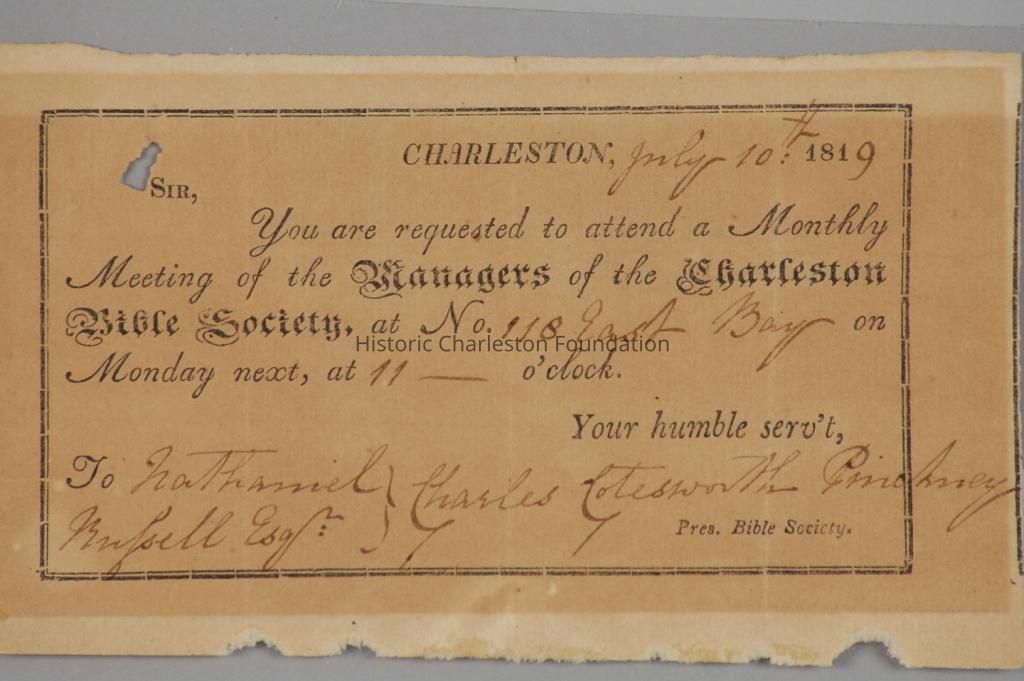 CHARLESTON, July 10th. 1819
SIR,
You are requested to attend a Monthly
Meeting of the Managers of the Charleston
Bible Society, at No. 118 East Bay on
Historic Charleston Foundation
Monday next, at 11 — o'clock.
Your humble serv't,
To Nathaniel } Charles Cotesworth Pinckney
Rufsell Esqr: Pres. Bible Society.